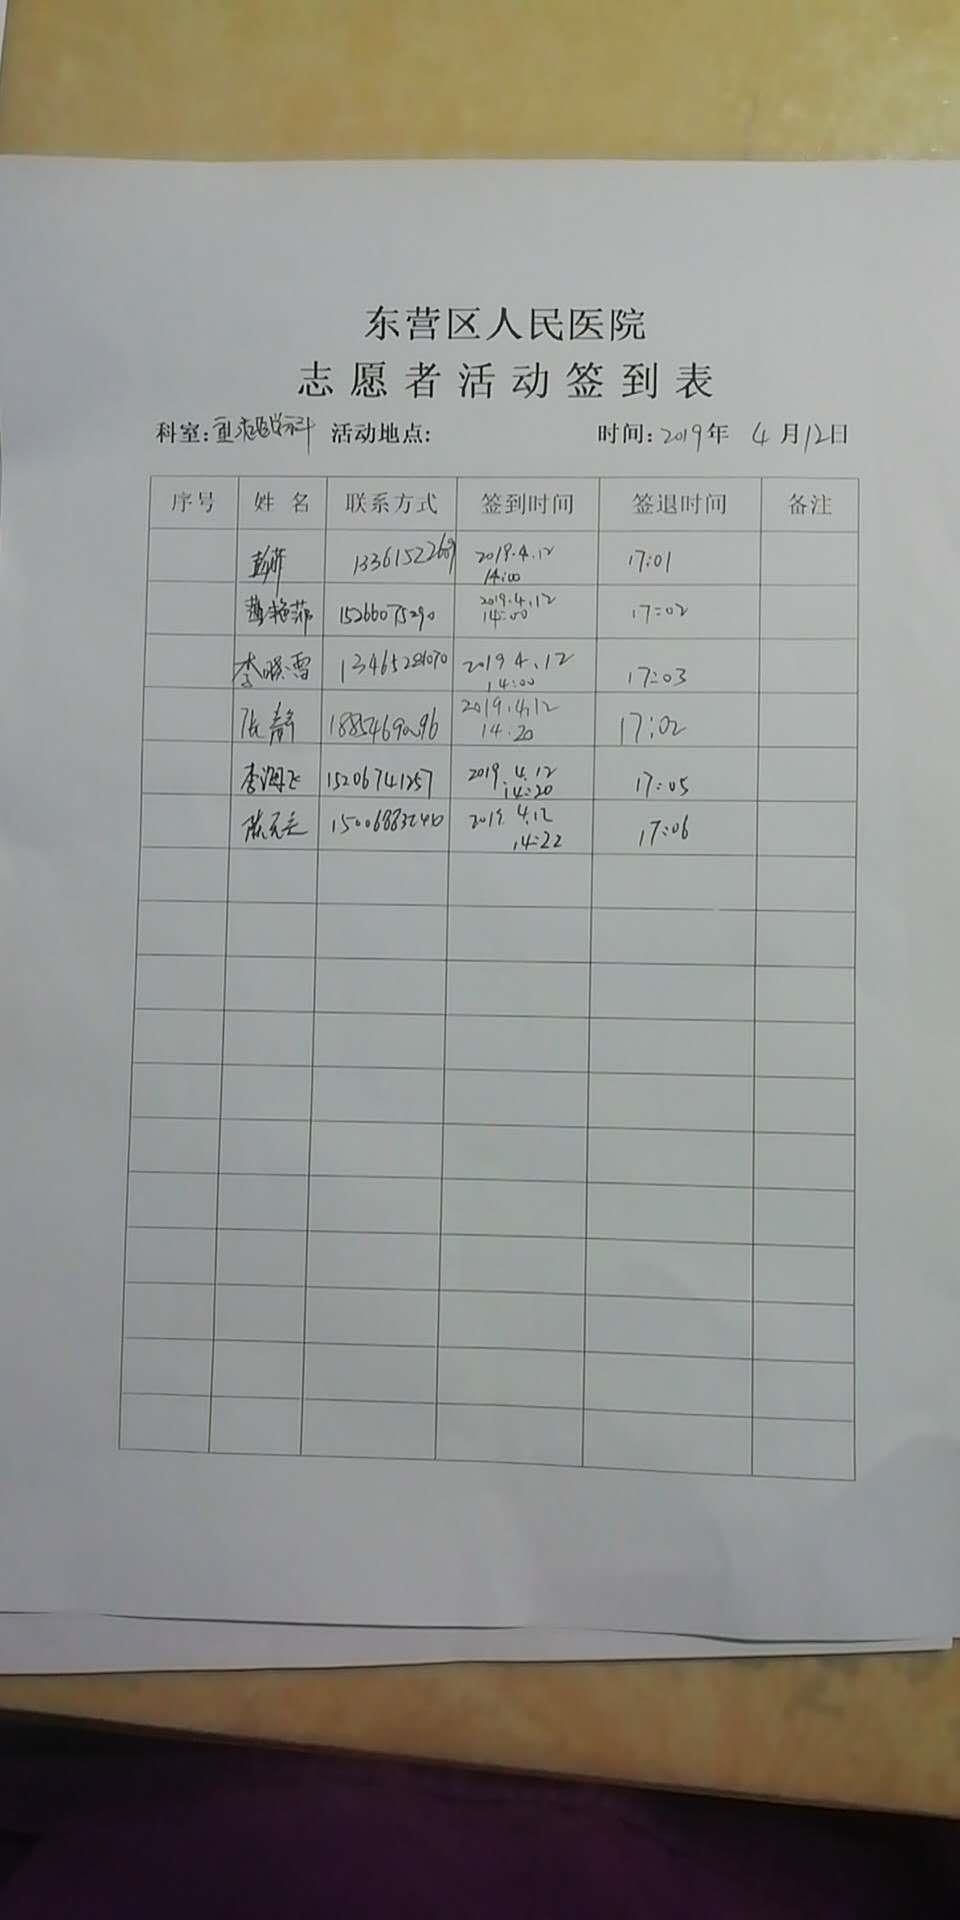 东营区人民医院
志愿者活动签到表
科室: 活动地点: 时间: 2019年 4月12日
序号 姓名 联系方式 签到时间 签退时间 备注
2019.4.12 17:01
14:00
15266075290 2019.4.12 17:02
14:00
李晓雪 2019 4.12 17:03
14:00
张静 2019.4.12 17:02
14.20
李海飞 15206741257 2019.4.12 17:05
14:20
2019.4.12 17:06
14:22